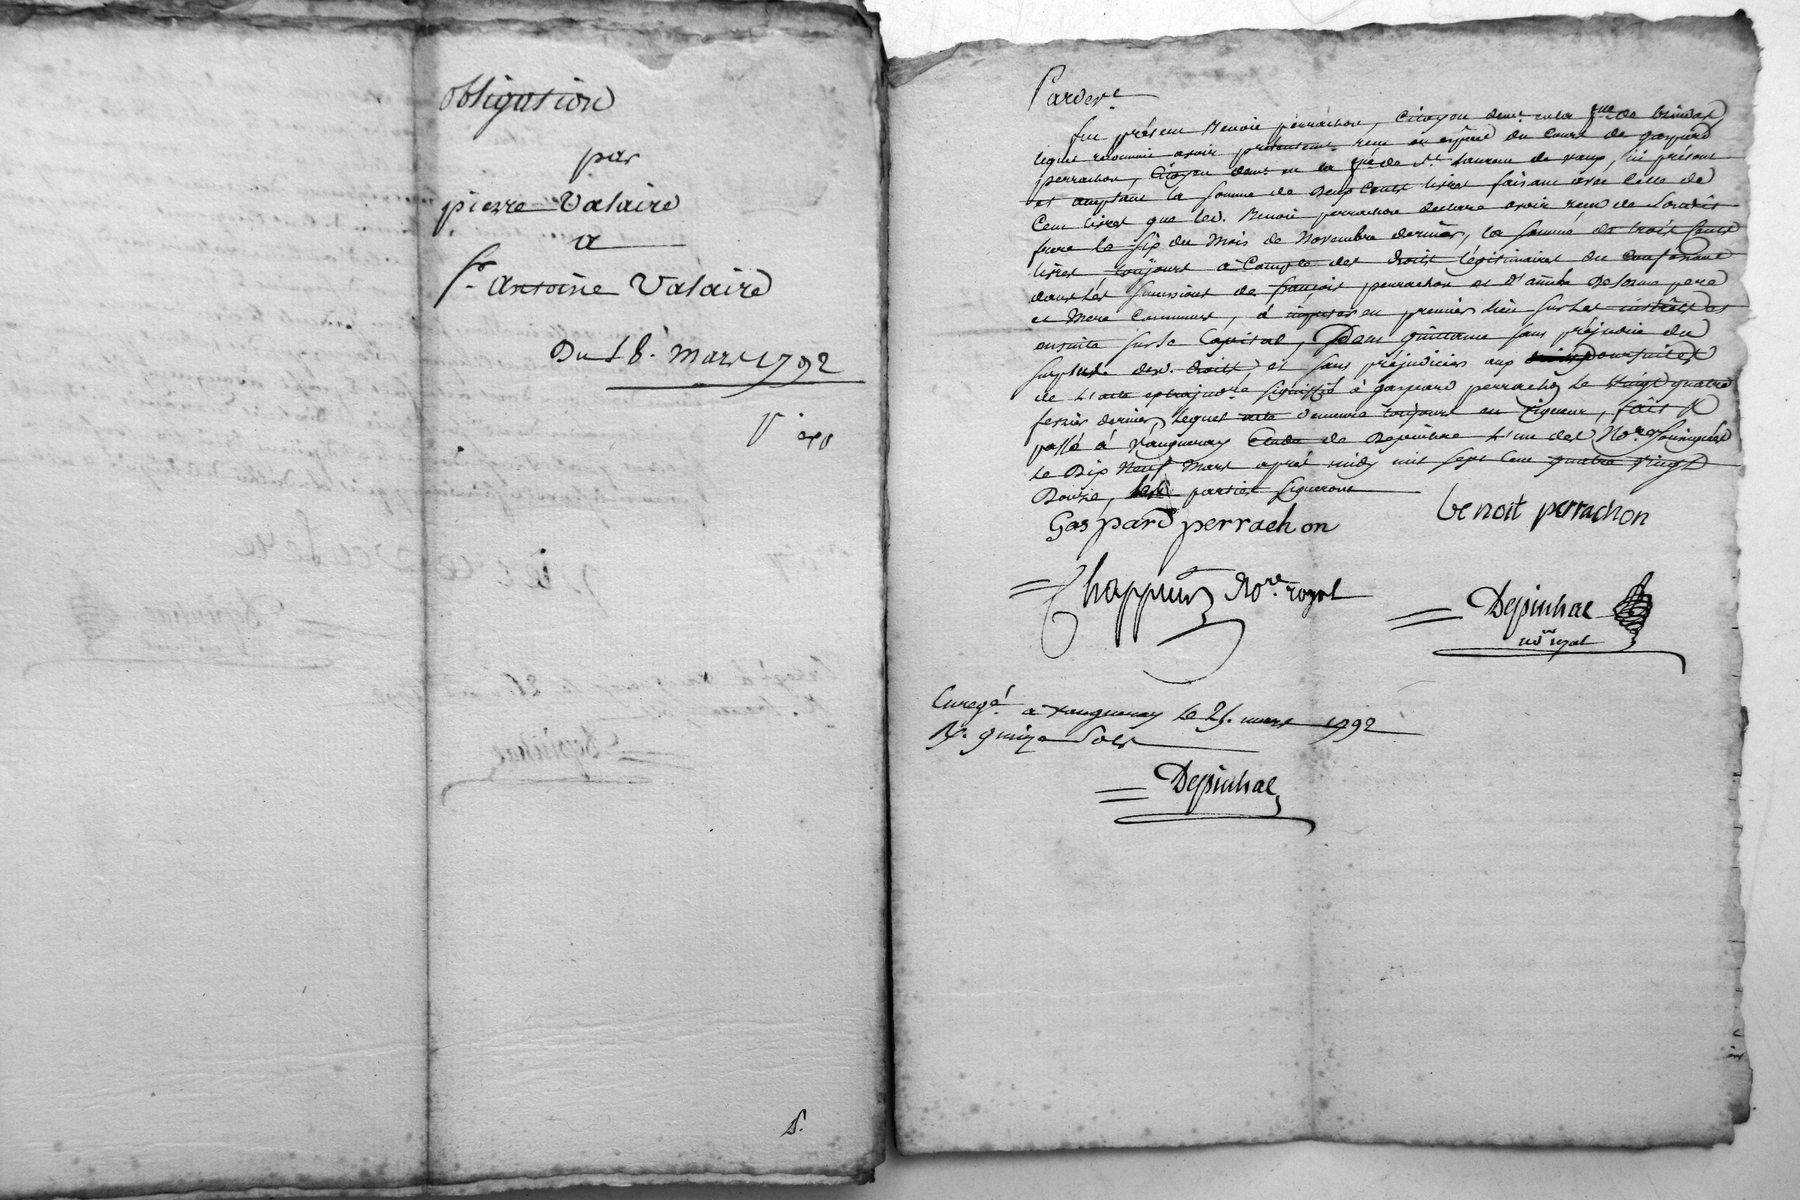 obligation
par
pierre Valaire
a
Sr. Antoine Valaire
Du 18. Mars 1792
Pardevt
fut présent Benoit perrachon, citoyen demt. en la de brindas
lequel reconnoit avoir présentemt. reçu en espèce du cours de gaspard
perrachon, Citoyen demt. en la de St. Laurent de vaux, ici présent
et acceptant la somme de Deux Cents livres faisant avec Celle de
Cent livres que led. Benoit perrachon declare avoir reçu de son dit
frere le six du Mois de Novembre dernier, la somme de trois Cents
livres toujours à Compte des droits légitimaires du Confessant
dans les successions de françois perrachon et d'anne Delorme pere
et Mere Communs, à imputer en premier lieu sur les intérêts et
ensuite sur le Capital, Dont quittance sans préjudice du
surplus desd. droits, et sans préjudicier aux poursuites
de l'acte extrajudre. signiffié à gaspard perrachon le vingt quatre
fevrier dernier, lequel acte demeure toujours en vigueur, fait &
passé à Vaugneray Etude de Depinhac l'un des Nores. soussignés
le Dix Neuf Mars après midy mil sept Cent quatre vingt
Douze, les parties signeront
Gaspard perrachon benoit perrachon
Chappuis Nore. royal
Depinhac
nore royal
Enregé. a Vaugneray le 21. mars 1792
R. quinze sols
Depinhac